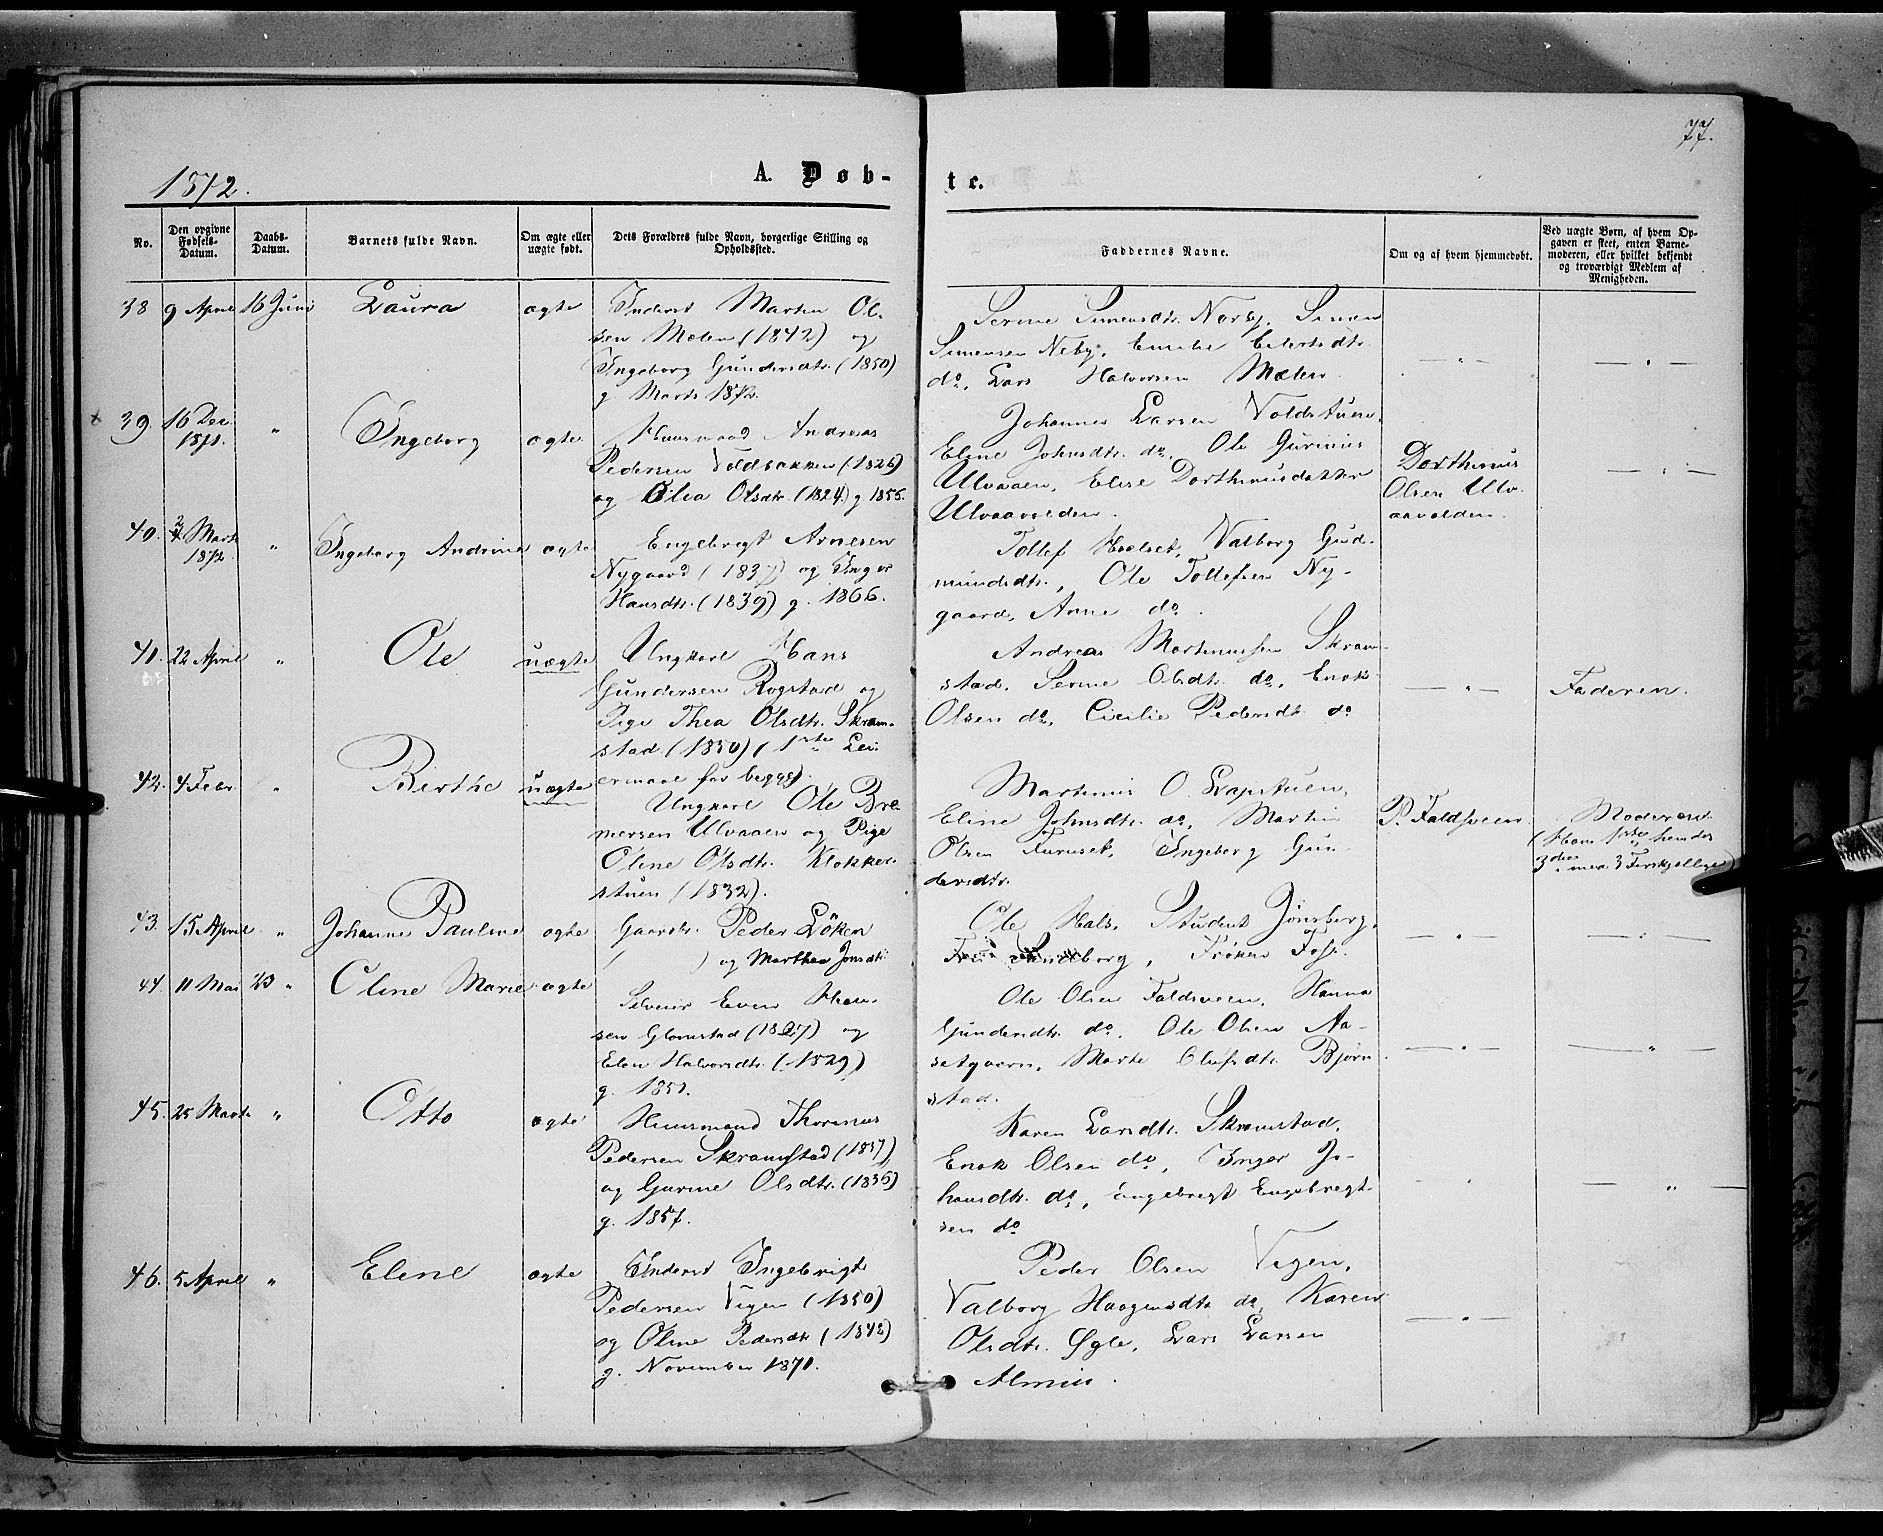 77.
1872.
A. Døb-
te.
No.
Den opgivne Fødsels-Datum.
Daabs-Datum.
Barnets fulde Navn.
Om ægte eller uægte født.
Dets Forældres fulde Navn, borgerlige Stilling og Opholdssted.
Faddernes Navne.
Om og af hvem hjemmedøbt.
Ved uægte Børn, af hvem Op-
gaven er skeet, enten Barne-
moderen, eller hvilket bekjendt
og troværdigt Medlem af
Menigheden.
38 9 April 16 Juni Laura ægte
Inderst Marten Ol-
sen Mælen (1842) og
Ingeborg Gundersdtr. (1850)
g. Marts 1872.
Serine Simensdtr. Norby, Simen
Simensen Neby, Emilie Eilertsdtr.
do, Lars Halvorsen Mælen
— " —
— " —
x 39. 16 Dec 1871. " Ingeborg ægte
Huusmand Andreas
Pedersen Voldbakken (1826)
og Olia Olsdtr. (1824) g 1855.
Johannes Larsen Voldstuen,
Eline Johnsdtr. do, Ole Gurinius
Ulvaaen, Elise Dorthinusdatter
Ulvaavolden.
Dorthinus
Olsen Ulv-
aavolden.
— " —
40. 2 Marts 1872. " Ingeborg Andrine ægte
Engebregt Arnesen
Nygaard (1837) og Inger
Hansdtr. (1839) g. 1866.
Tollef Hoelset, Valborg Gud-
mundsdtr., Ole Tollefsen Ny-
gaard, Anne do.
41. 22 April " Ole uægte
Ungkarl Hans
Gundersen Rogstad og
Pige Thea Olsdtr. Skram-
stad (1850) (1ste Lei-
ermaal for begge).
Andreas Martinussen Skram-
stad, Serine Olsdtr. do, Enok
Olsen do, Cicilie Pedersdtr. do
— " —
Faderen.
42. 4 Febr. " Birthe uægte
Ungkarl Ole Bre-
mersen Ulvaaen og Pige
Oline Olsdtr. Klokker-
stuen (1832).
Martinus O. Lapstuen,
Eline Johnsdtr. do, Martin
Olsen Furuset, Ingeborg Gun-
dersdtr.
P. Faldsveen
Moderen.
(Hans 1ste, hendes
3die med 3 Forskjellige)
43. 15 April " Johanne Pauline ægte
Gaardbr. Peder Löken
( ) og Marthea Jonsdtr.
Ole Hals, Student Jönsberg,
Sundborg, Frøken Foss.
— " —
— " —
44. 11 Mai 23 " Oline Marie ægte
Selveier Even Han-
sen Glomstad (1827) og
Elen Halvorsdtr. (1829)
g. 1851.
Ole Olsen Faldsveen, Hanna
Gundersdtr. do, Ole Olsen Aa-
setgaarn, Marte Olufsdtr. Bjørn-
stad.
— " —
— " —
45. 25 Marts " Otto ægte
Huusmand Thorinus
Pedersen Skramstad (1837)
og Gurine Olsdtr. (1836)
g. 1857.
Karen Larsdtr. Skramstad,
Enok Olsen do, Inger Jo-
hansdtr. do, Engebregt Engebregt-
sen do
"
— " —
46. 5 April " Eline ægte
Inderst Ingebrigt
Pedersen Vigen (1850)
og Oline Pedersdtr (1842)
g. November 1871.
Peder Olsen Vigen,
Valborg Haagensdtr do, Karen
Olsdtr. Øgle, Lars Larsen
Almius.
— " —